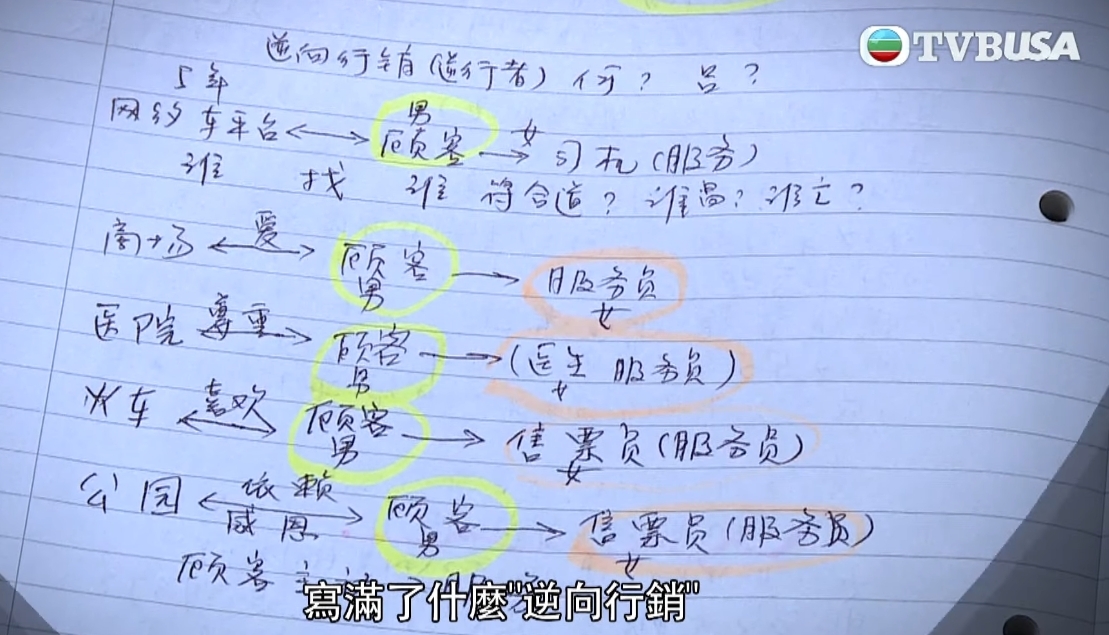 TVBUSA
逆向行销(逆行者) 何? 吕?
5年
网约车平台 男 顾客 女 司机(服务)
谁 找 谁 符合道? 谁 谁亡?
商场 爱 顾客 男 服务员 女
医院 尊重 顾客 男 (医生 服务员) 女
火车 喜欢 顾客 男 售票员(服务员) 女
公园 依赖 感恩 顾客 男 售票员(服务员) 女
顾客
寫滿了什麼"逆向行銷"